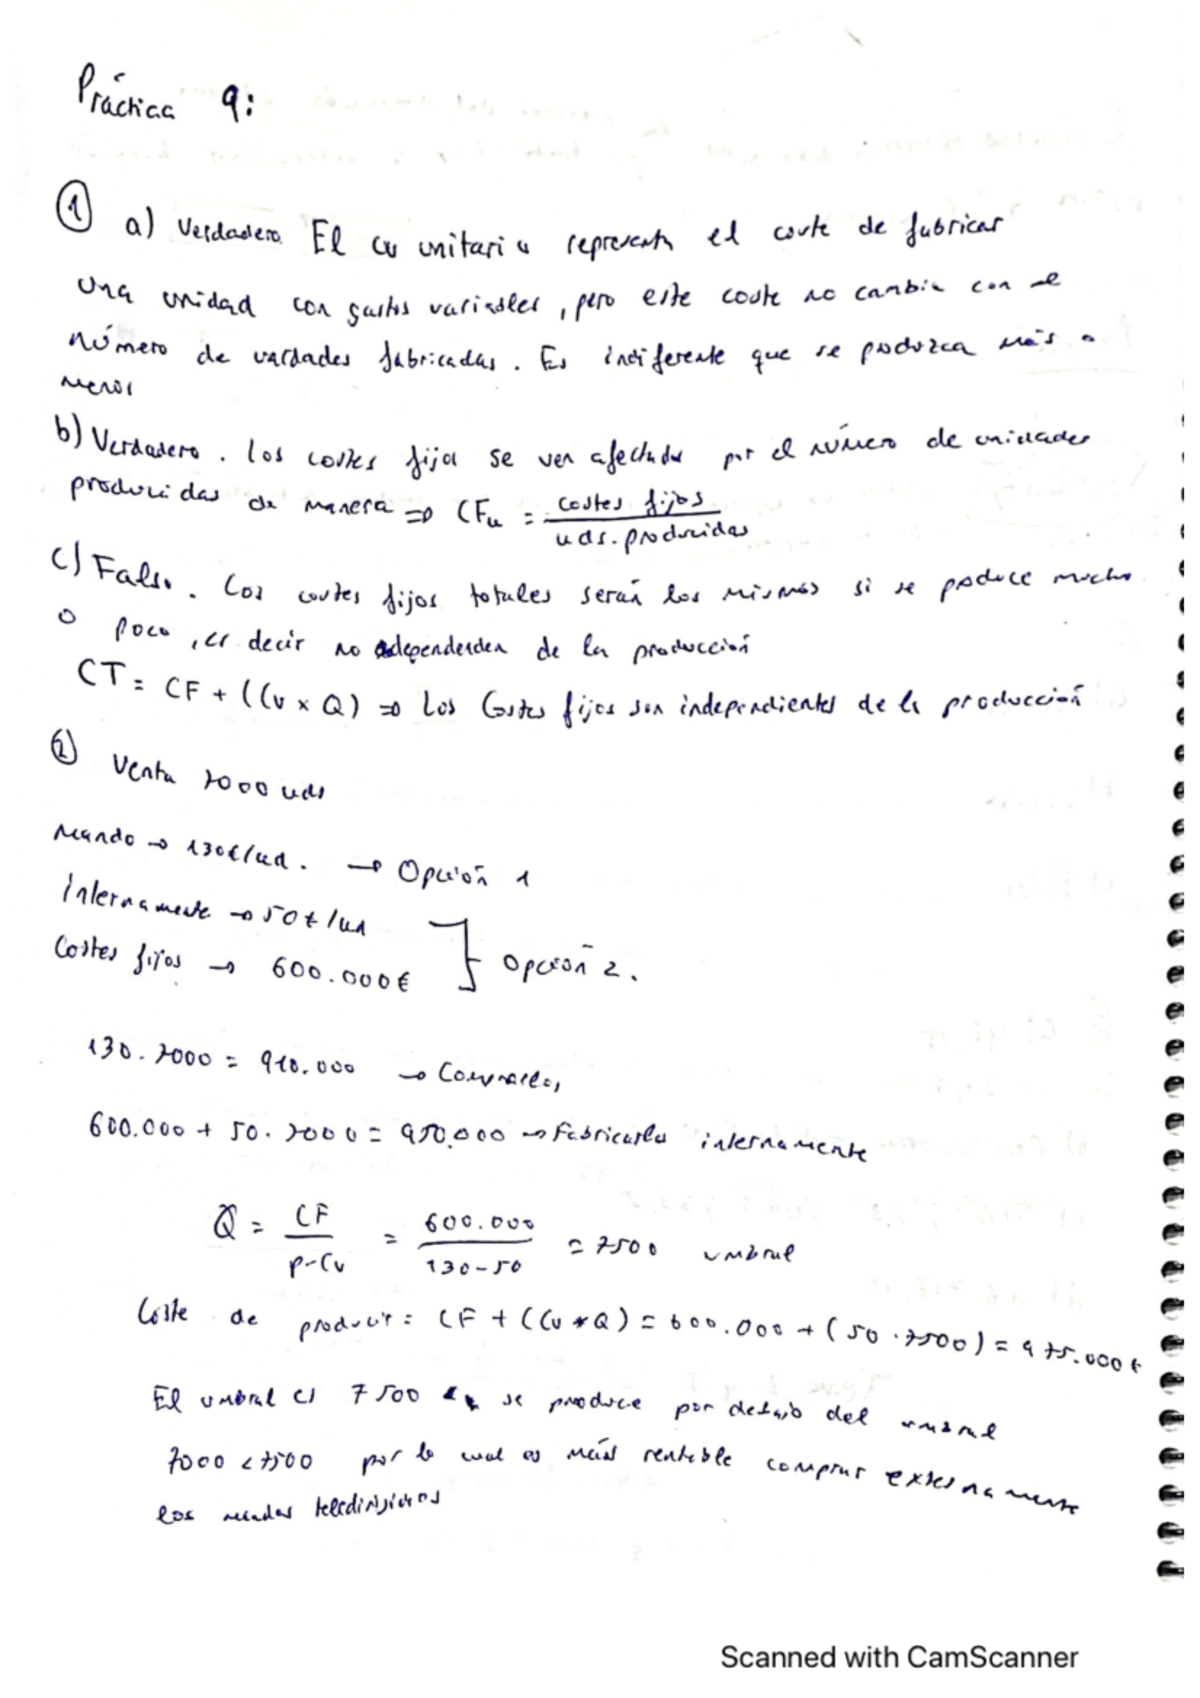 Práctica 9:
① a) Verdadero. El cv unitario represente el coste de fabricar
una unidad con gastos variables, pero este coste no cambia con el
número de unidades fabricadas. Es indiferente que se produzca más o
menos
b) Verdadero. Los costes fijos se ven afectados por el número de unidades
producidas de manera ⇒ CFu = costes fijos / uds. producidas
c) Falso. Los costes fijos totales serán los mismos si se produce mucho
o poco, es decir no dependerden de la producción
CT = CF + (Cv x Q) ⇒ Los Costes fijos son independientes de la producción
② Venta 7000 uds
Mando → 130€/ud. → Opción 1
Internamente → 50€/ud
Costes fijos → 600.000€ ] Opción 2.
130 · 7000 = 910.000 → Comprarlo,
600.000 + 50 · 7000 = 950.000 → Fabricarlo internamente
Q = CF / p-Cv = 600.000 / 130-50 = 7500 umbral
Coste de producir = CF + (Cv * Q) = 600.000 + (50 · 7500) = 975.000€
El umbral es 7500 se produce por debajo del umbral
7000 < 7500 por lo cual es más rentable comprar externamente
los mandos teledirigidos
Scanned with CamScanner